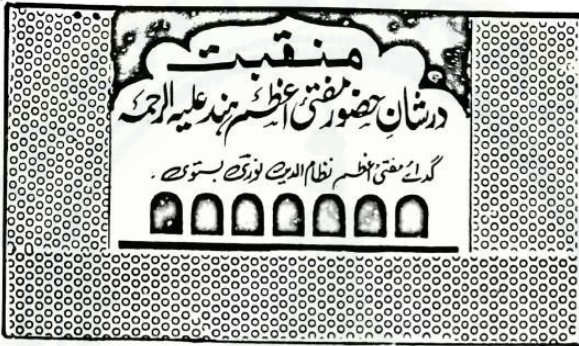 منقبت
در شانِ حضور مفتیٔ اعظم ہند علیہ الرحمہ
گدائے مفتیٔ اعظم نظام الدین نوری بستوی ۔